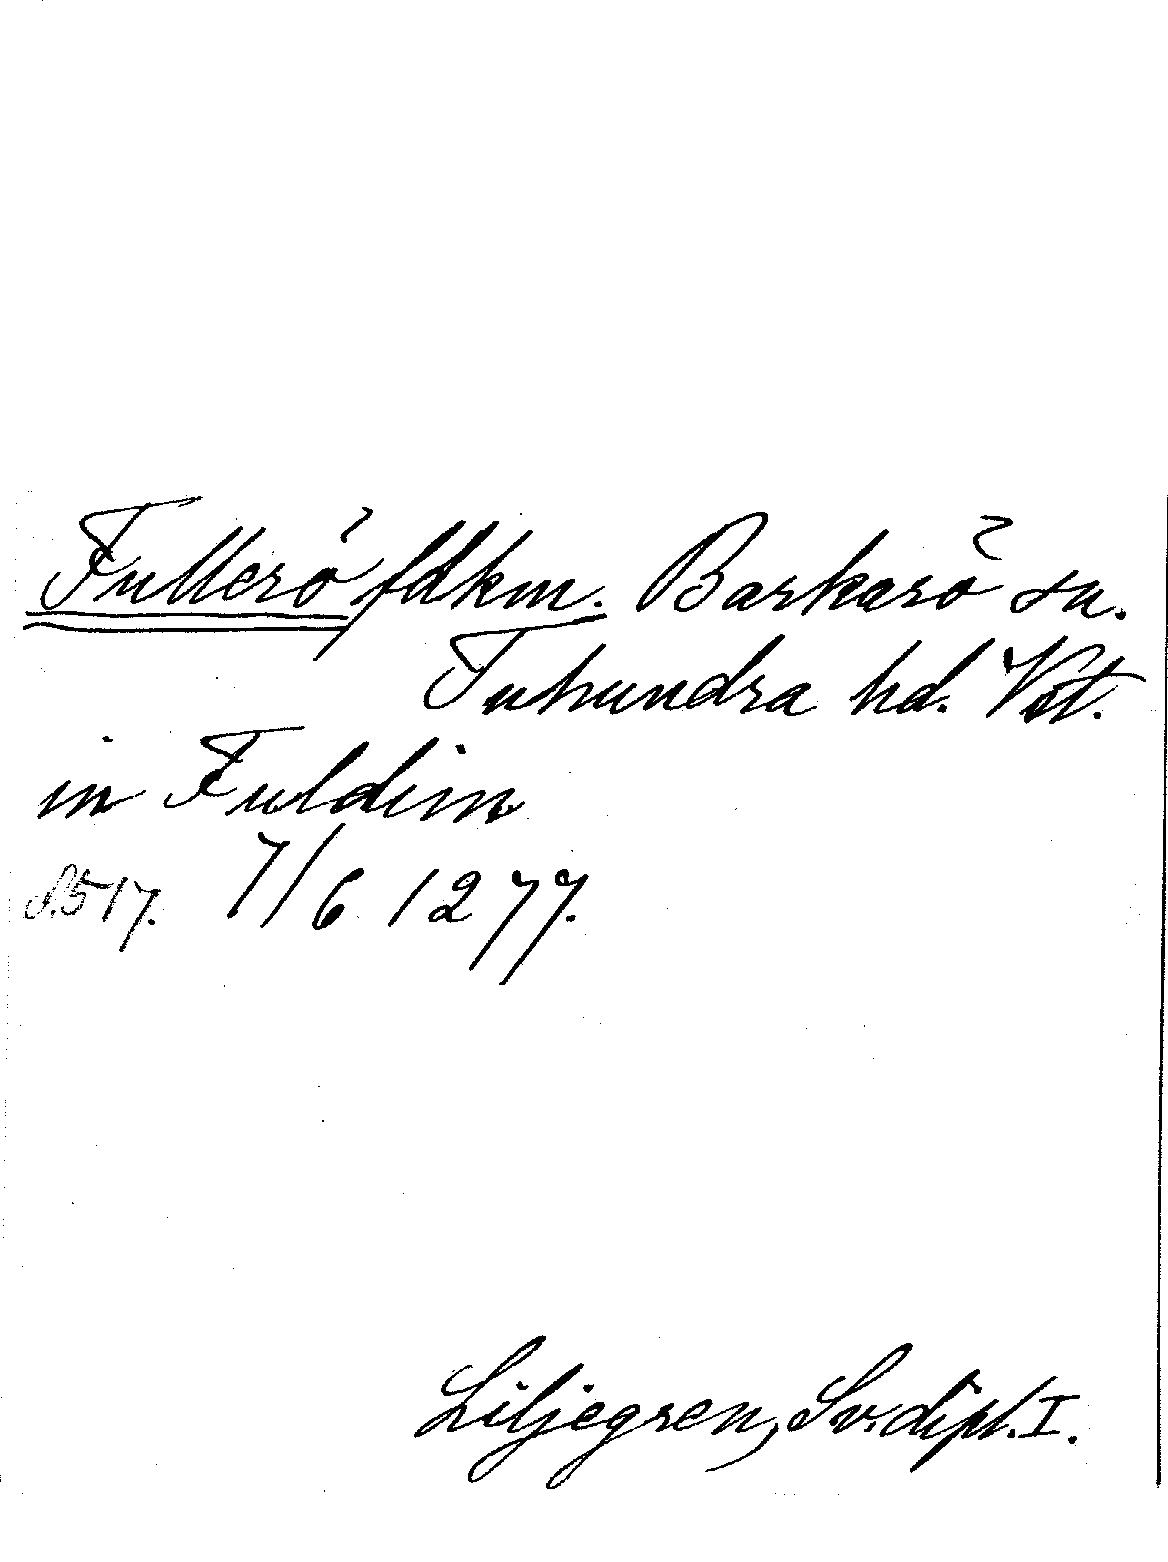 Fullerö fdkm. Barkarö sn.
Tuhundra hd. Vst.
in Fuldim
S. 517. 7/6 1277.
Liljegren, Sv. dipl. I.